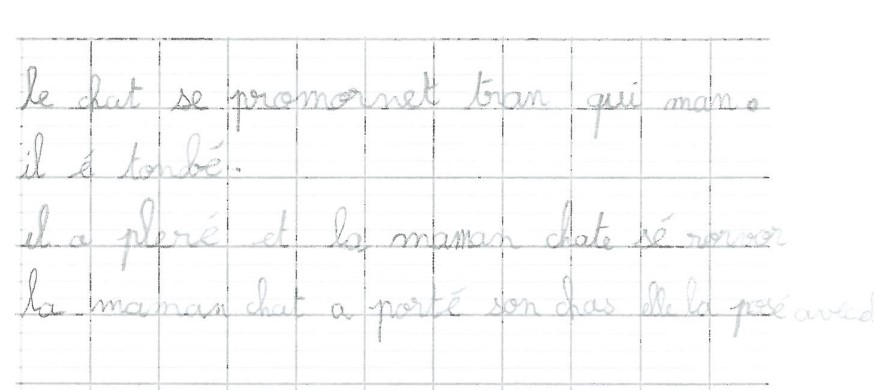 le chat se promornet tran qui man.
il é tonbé.
il a pleré et la maman chate sé
la maman chat a porté son chas elle la posé avec